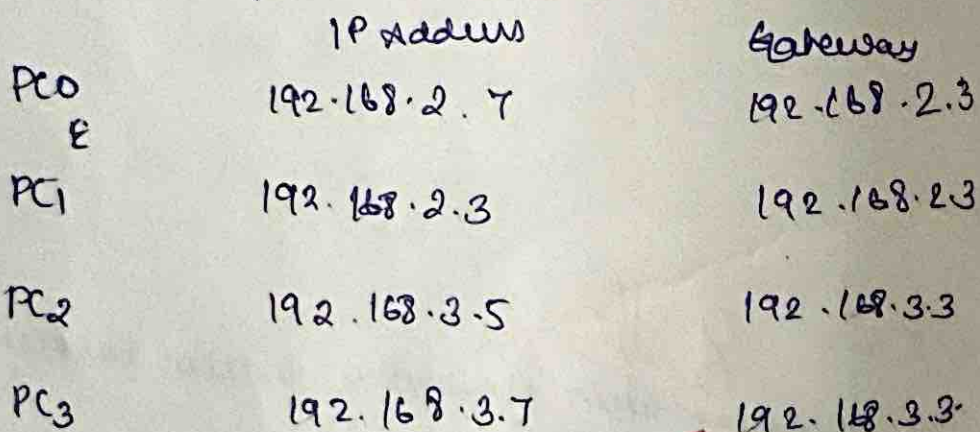 IP Address Gateway
PC0 192.168.2.7 192.168.2.3
&
PC1 192.168.2.3 192.168.2.3
PC2 192.168.3.5 192.168.3.3
PC3 192.168.3.7 192.168.3.3